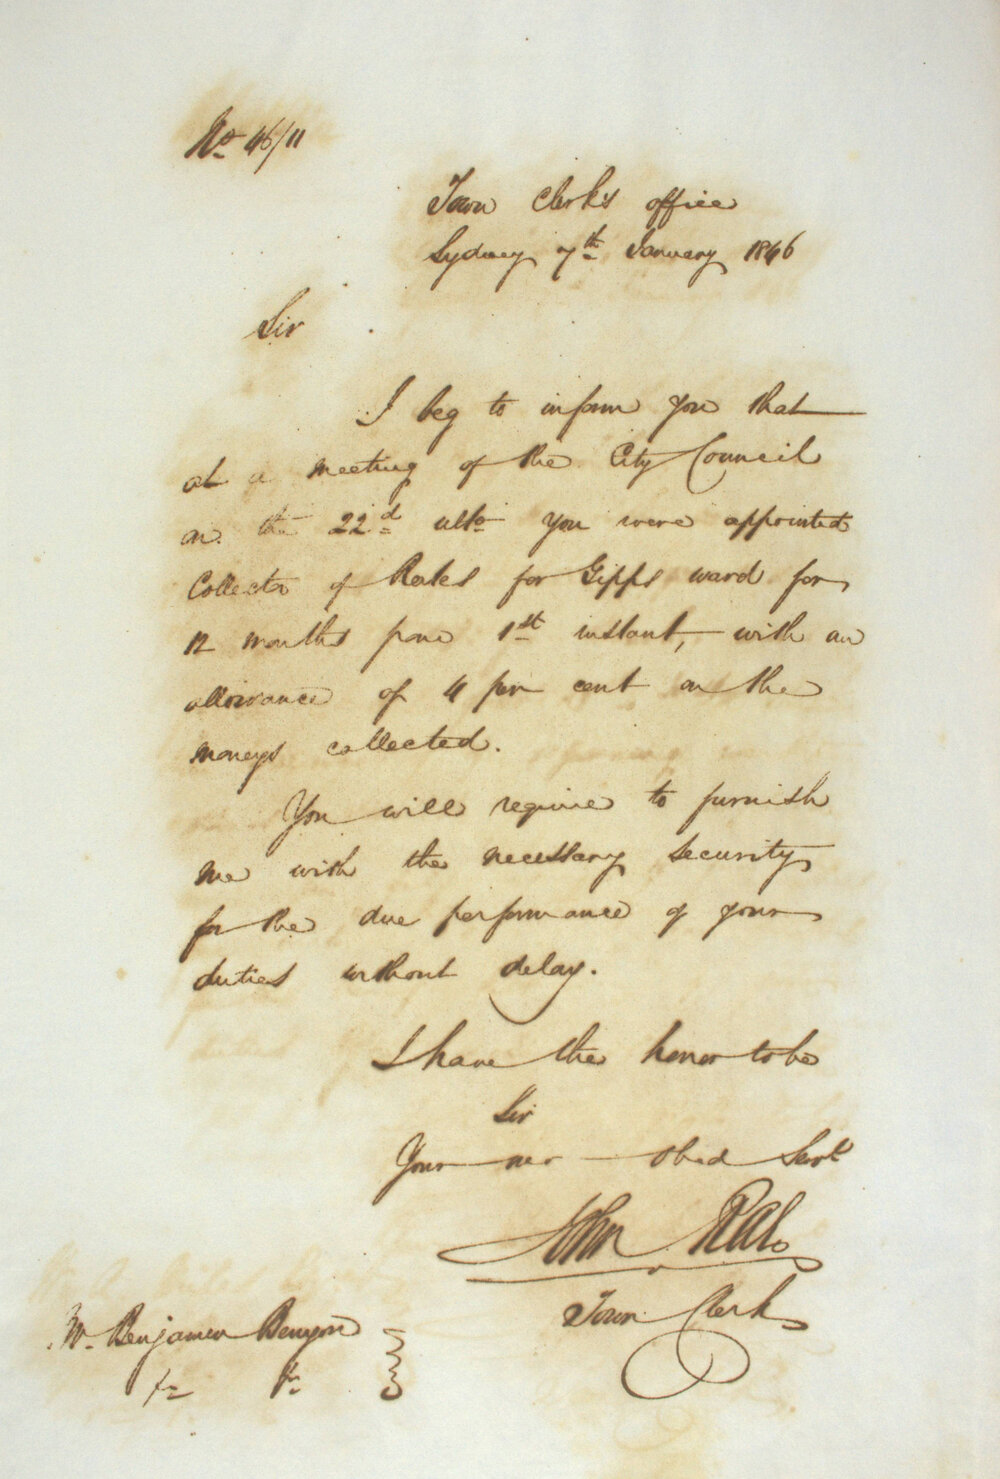 No 46/11
Town Clerk's office
Sydney 7th January 1846
Sir
I beg to inform you that
at a meeting of the City Council
on the 22d ulto you were appointed
Collector of Rates for Gipps ward for
12 months from 1st instant, with an
allowance of 4 per cent on the
moneys collected.
You will require to furnish
me with the necessary security
for the due performance of your
duties without delay.
I have the honor to be
Sir
Your Obed Servt
John Rae
Town Clerk
Mr Benjamin Benyon